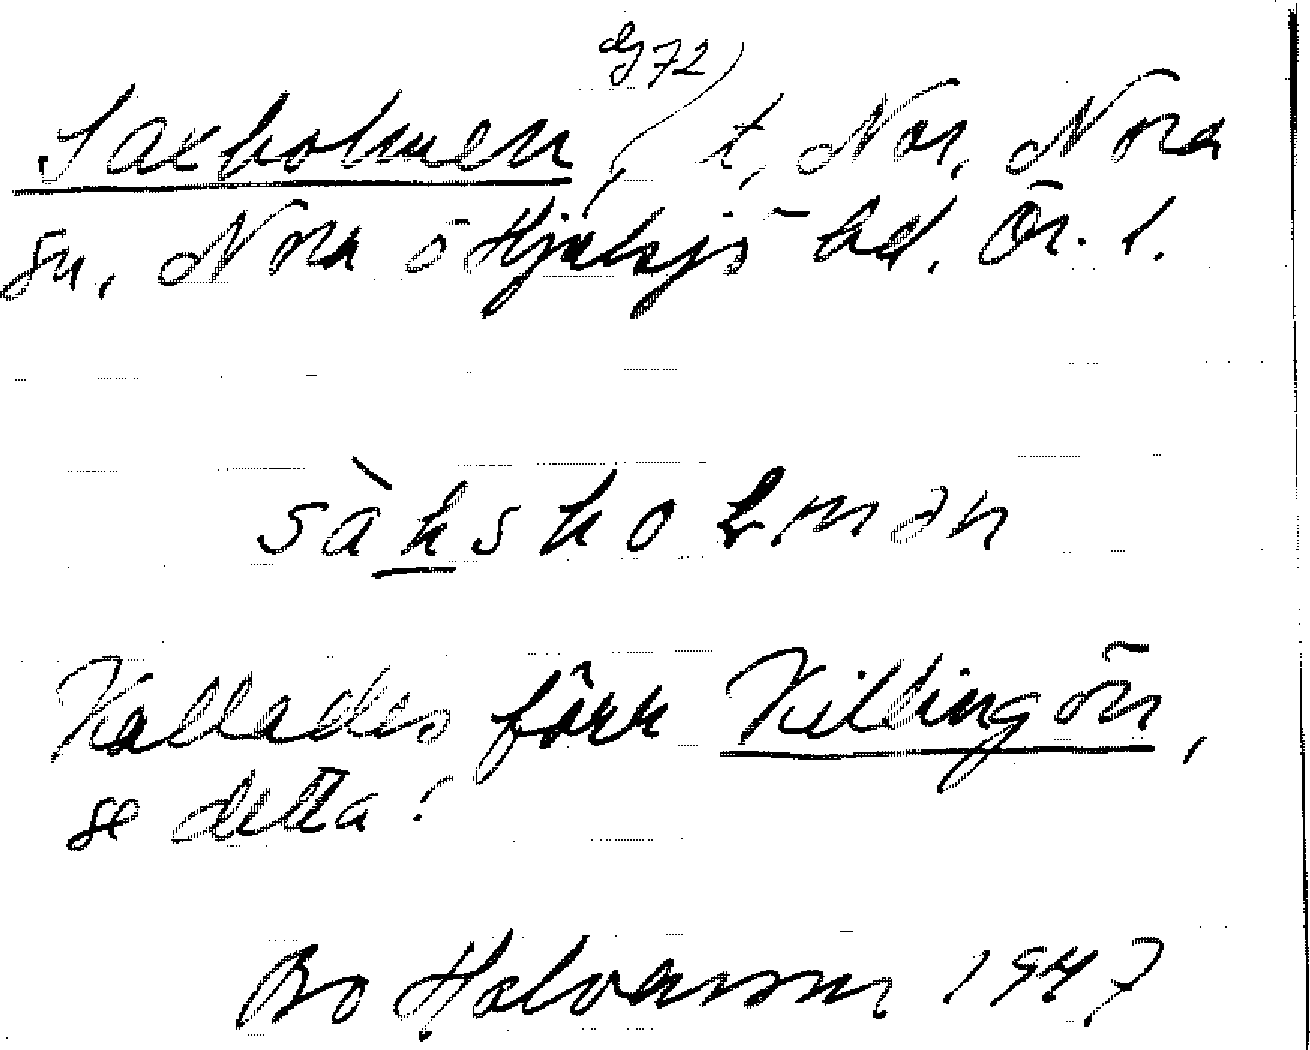 dg 72
Saxholmen, t, Nor, Nora
sn, Nora o Hjulsjö bd. Ör. l.
sàksholmən
Kallades förr Killingön,
se detta!
Bo Halvarson 1947